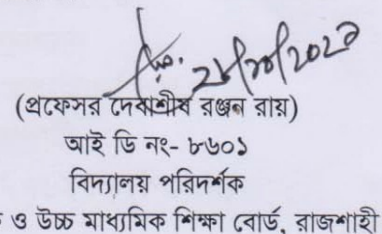 (প্রফেসর দেবাশীষ রঞ্জন রায়)
আই ডি নং- ৮৬০১
বিদ্যালয় পরিদর্শক
ও উচ্চ মাধ্যমিক শিক্ষা বোর্ড, রাজশাহী